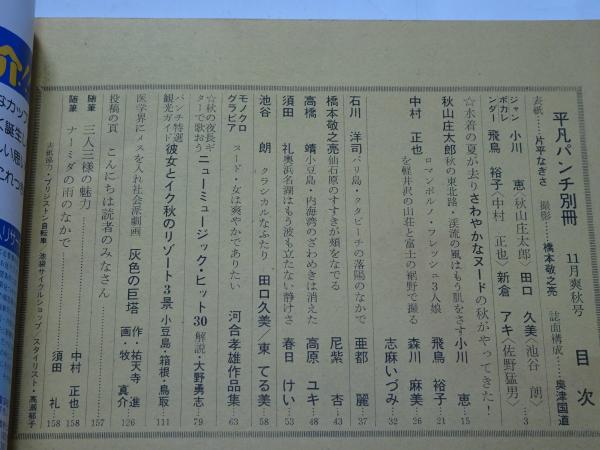 平凡パンチ別冊 11月爽秋号 目次
表紙・片平なぎさ 撮影・橋本敬之亮 誌面構成・奥津国道
ジャンボカレンダー 小川 恵〈秋山庄太郎〉田口 久美〈池谷 朗〉
飛鳥 裕子〈中村 正也〉新倉 アキ〈佐野猛男〉 3
☆水着の夏が去りさわやかなヌードの秋がやってきた!
秋山庄太郎 秋の東北路・渓流の風はもう肌をさす 小川 恵 15
ロマンポルノ・フレッシュ3人娘 飛鳥 裕子 21
中村 正也 を軽井沢の山荘と富士の裾野で撮る 森川 麻美 26
志麻いづみ 32
石川 洋司 バリ島・クタビーチの落陽のなかで 亜都 麗 37
橋本敬之亮 仙石原のすすきが頬をなでる 尼紫 杏 43
高橋 靖 小豆島・内海湾のざわめきは消えた 高原 ユキ 48
須田 礼 奥浜名湖はもう波も立たない静けさ 春日 けい 53
池谷 朗 クラシカルなふたり 田口久美/東 てる美 58
モノクログラビア ヌード・女は爽やかでありたい 河合孝雄作品集 63
☆秋の夜長ギターで歌おう ニューミュージック・ヒット30 解説・大野勇志 79
パンチ特選観光ガイド 彼女とイク秋のリゾート3景 小豆島・箱根・鳥取 111
医学界にメスを入れ社会派劇画 灰色の巨塔 作・祐天寺 進 画・牧 真介 126
投稿の頁 こんにちは読者のみなさん 157
随筆 三人三様の魅力 中村 正也 158
随筆 ナーミダの雨のなかで 須田 礼 158
表紙協力・ブリジストン自転車 池袋サイクルショップ/スタイリスト・高瀬郁子
介
なカップ
て誕生し
しい思い
これつ
人リサー